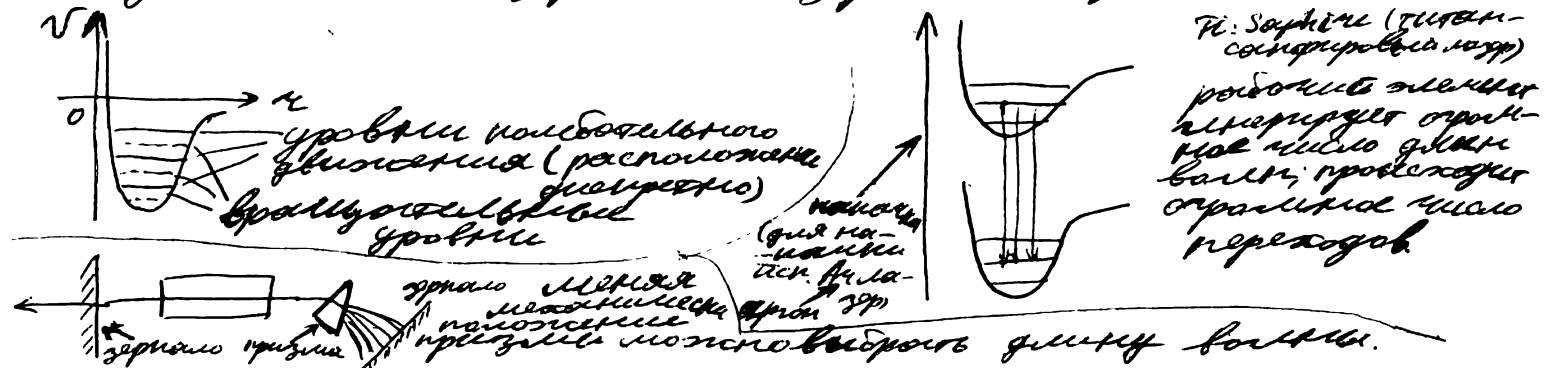 V
0
r
уровни колебательного
движения (расположены
дискретно)
вращательные
уровни
накачка
(для на-
качки
исп. Ar ла-
зер)
аргон
Ti: Saphire (титан-
сапфировый лазер)
рабочий элемент
генерирует огром-
ное число длин
волн; происходит
огромное число
переходов.
зеркало
призма
зеркало
меняя
механически
положение
призмы можно выбрать длину волны.